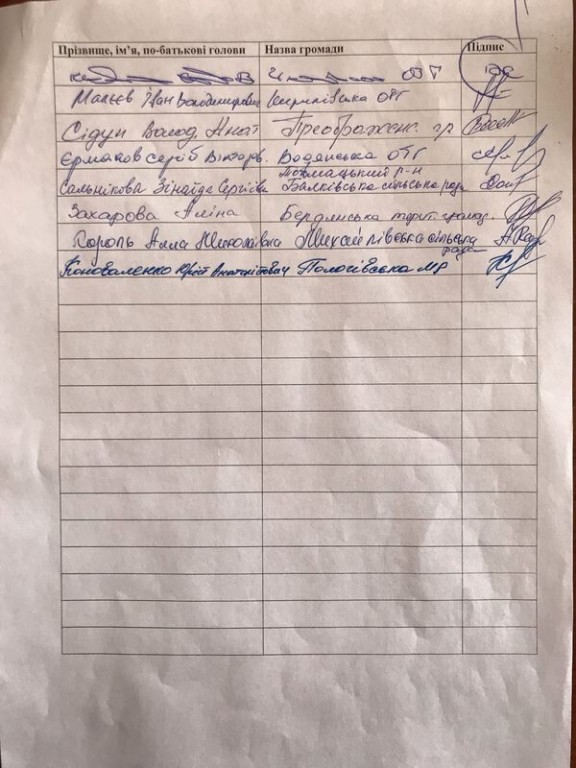 Прізвище, ім'я, по-батькові голови Назва громади Підпис
ОТГ
Малєєв Іван Володимирович Кирилівська ОТГ
Сідун Волод Игнат Преображенс. гр
Єрмаков Сергій Віктор. Водянська ОТГ
Токмацький р-н
Сальнікова Зінаїда Сергіївна Балківська сільська рада
Захарова Аміна Бердянська терит. громад.
Король Алла Миколаївна Михайлівська сільська
рада
Коноваленко Юрій Анатолійович Пологівська МР